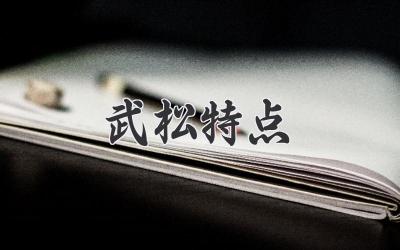 武松特点